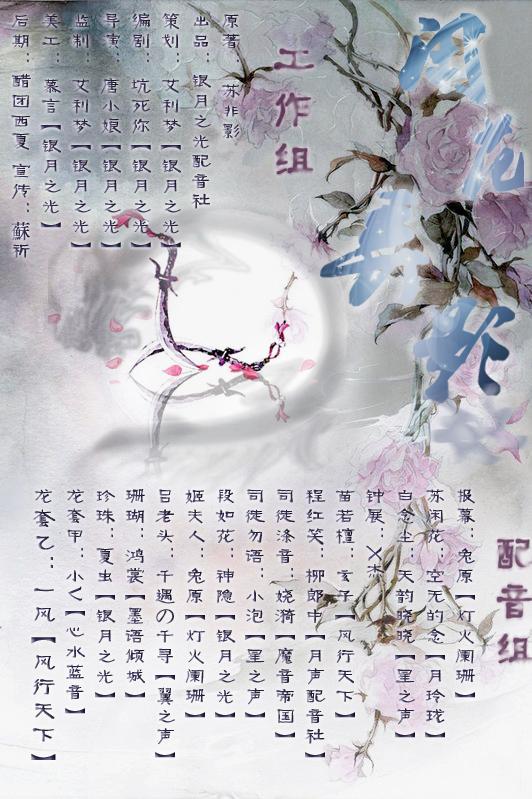 闲花弄影
工作组
原著：苏非影
出品：银月之光配音社
策划：艾利梦【银月之光】
编剧：坑死你【银月之光】
导演：唐小娘【银月之光】
监制：艾利梦【银月之光】
美工：慕言【银月之光】
后期：醋团西夏 宣传：蘇祈
配音组
报幕：兔原【灯火阑珊】
苏闲花：空无的念【月玲珑】
白念尘：天韵晓晓【星之声】
钟展：X杰
苗若檀：玄子【风行天下】
程红笑：柳郎中【月声配音社】
司徒涤音：娆漪【魔音帝国】
司徒勿语：小泡【星之声】
段如花：神隐【银月之光】
姬夫人：兔原【灯火阑珊】
吕老头：千遇の千寻【翼之声】
珊瑚：鸿裳【墨语倾城】
珍珠：夏虫【银月之光】
龙套甲：小く【心水蓝音】
龙套乙：一风【风行天下】